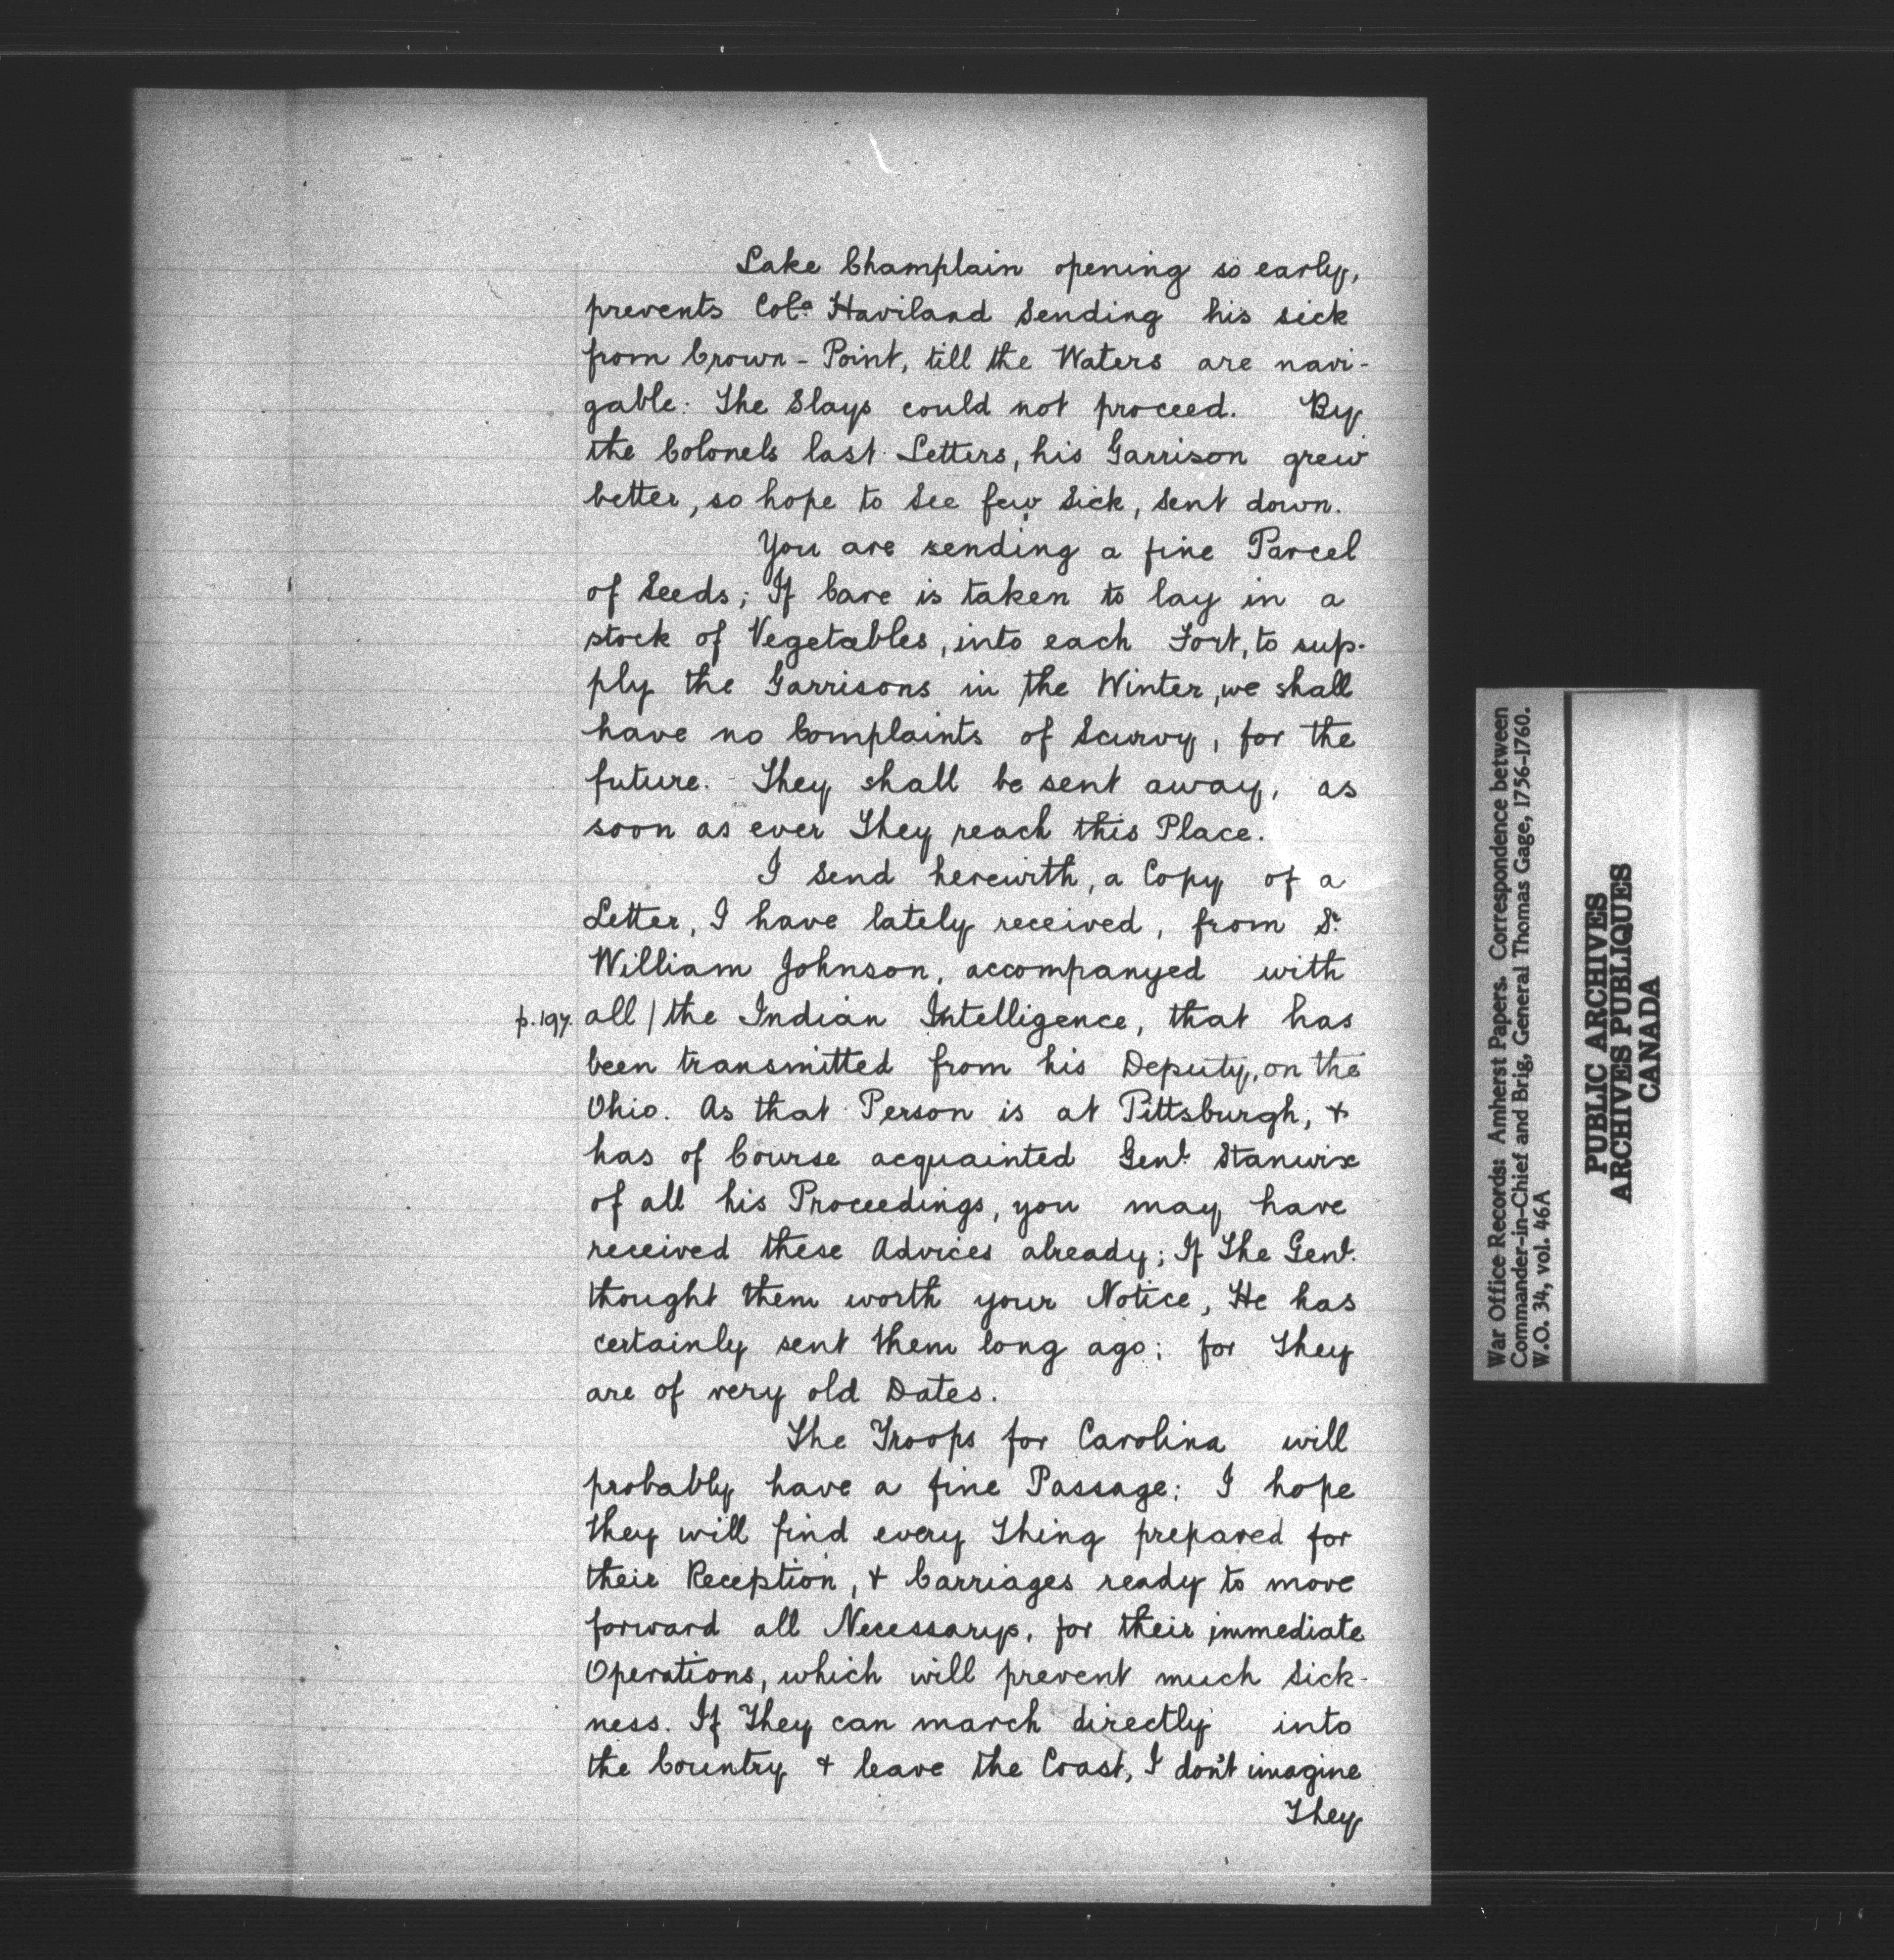 Lake Champlain opening so early,
prevents Colo. Haviland Sending his sick
from Crown-Point, till the Waters are navi-
gable: The Slays could not proceed. By
the Colonels last Letters, his Garrison grew
better, so hope to See few Sick, Sent down.
You are sending a fine Parcel
of Seeds; If Care is taken to lay in a
stock of Vegetables, into each Fort, to sup-
ply the Garrisons in the Winter, we shall
have no Complaints of Scurvy, for the
future. They shall be sent away, as
soon as ever They reach this Place.
I Send herewith, a Copy of a
Letter, I have lately received, from Sr.
William Johnson, accompanyed with
p.197. all / the Indian Intelligence, that has
been transmitted from his Deputy, on the
Ohio. As that Person is at Pittsburgh, &
has of Course acquainted Genl. Stanwix
of all his Proceedings, you may have
received these Advices already; If The Genl.
thought them worth your Notice, He has
certainly sent them long ago; for They
are of very old Dates.
The Troops for Carolina will
probably have a fine Passage; I hope
they will find every Thing prepared for
their Reception, & Carriages ready to move
forward all Necessarys, for their immediate
Operations, which will prevent much Sick-
ness. If They can march directly into
the Country & leave the Coast, I don't imagine
They
War Office Records: Amherst Papers. Correspondence between
Commander-in-Chief and Brig. General Thomas Gage, 1756-1760.
W.O. 34, vol. 46A
PUBLIC ARCHIVES
ARCHIVES PUBLIQUES
CANADA